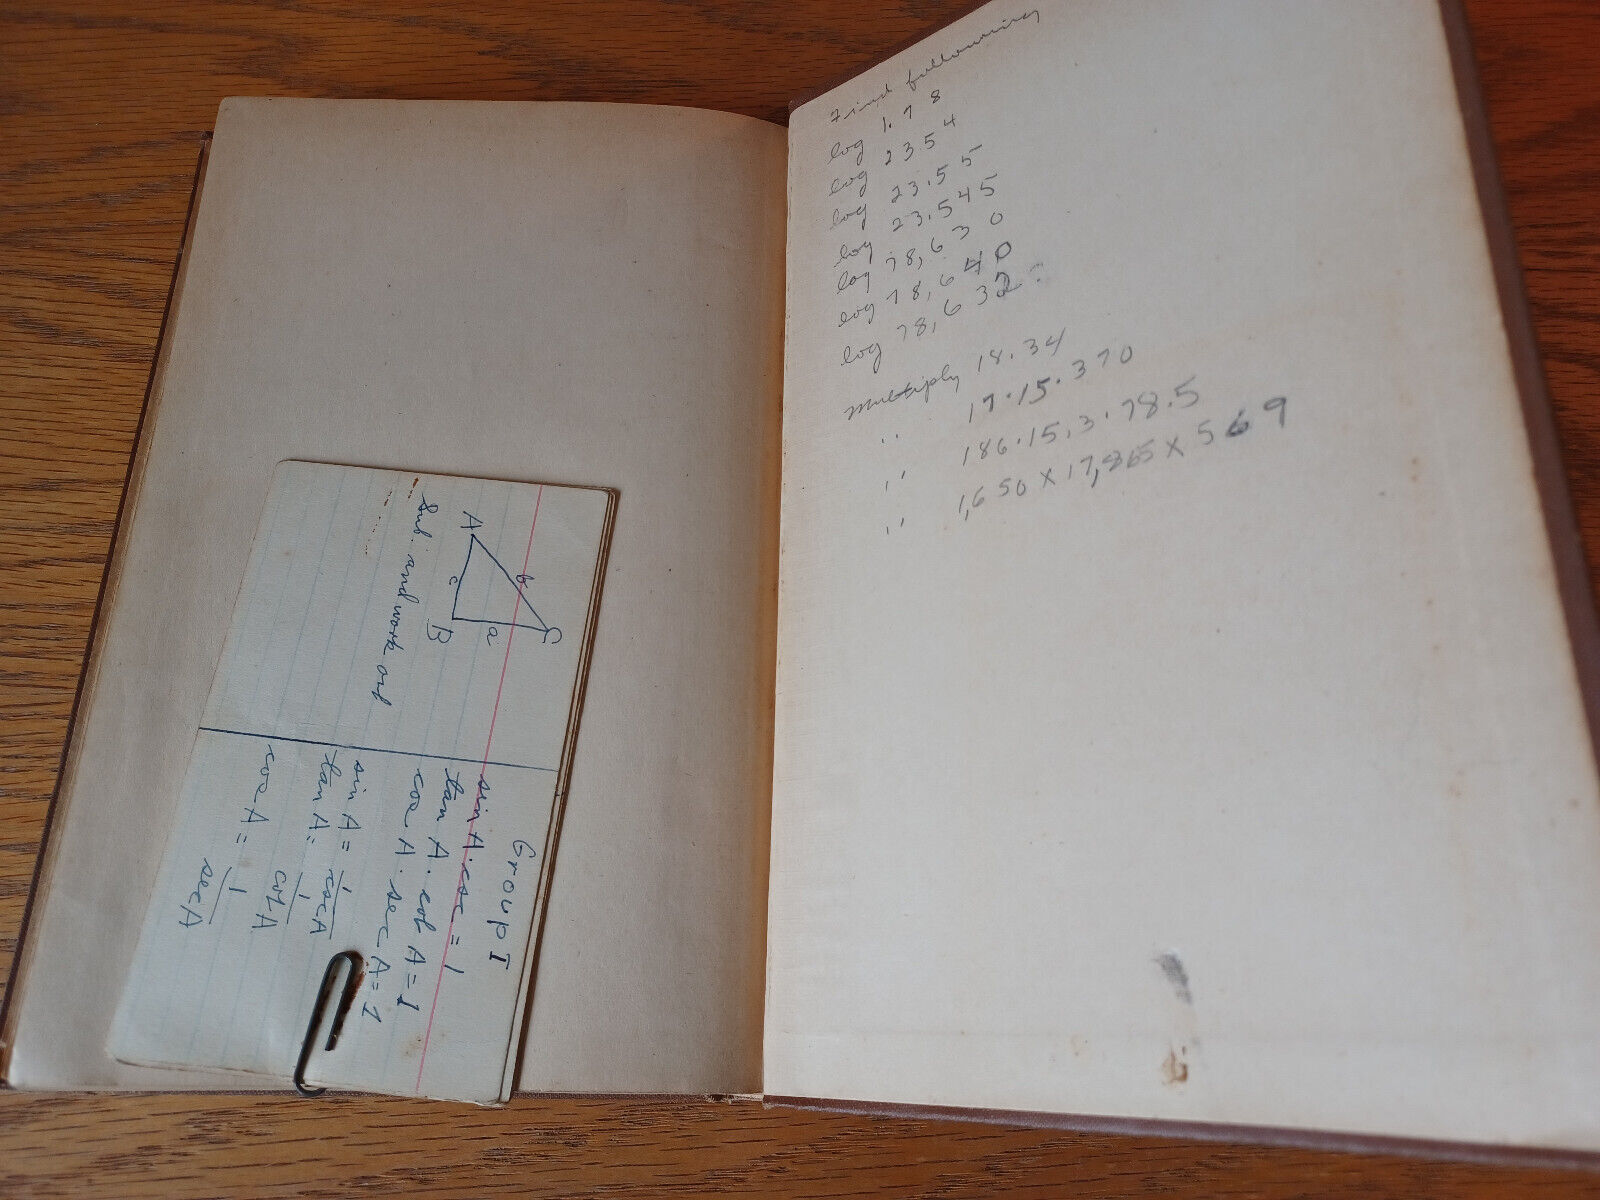 Sub. and work out
A
b
C
c
a
B
Group I
sin A · csc = 1
tan A · cot A = 1
cos A · sec A = 1
sin A = 1/csc A
tan A = 1/cot A
cos A = 1/sec A
Find following
log 1.78
log 2354
log 23.55
log 23.545
log 78,630
log 78,640
log 78,632
Multiply 18.34
" 17·15·370
" 186·15.3·78.5
" 1,650 x 17,865 x 569